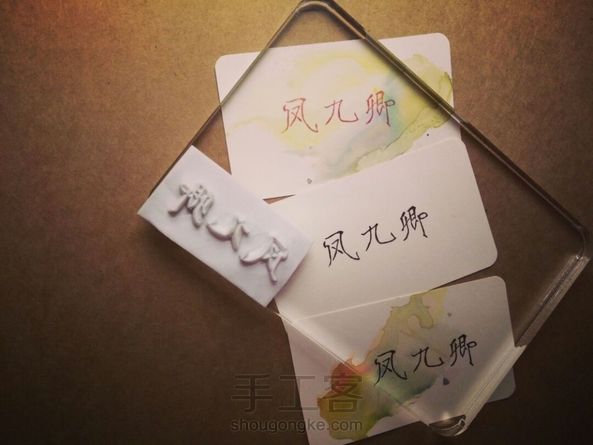 凤九卿
凤九卿
凤九卿
手工客
shougongke.com